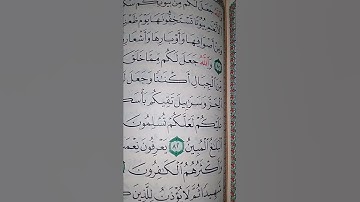 جعل لكم من بيوتكم
ٱلۡأَنۡعَٰمِ بُيُوتٗا تَسۡتَخِفُّونَهَا يَوۡمَ ظَعۡ
وَمِنۡ أَصۡوَافِهَا وَأَوۡبَارِهَا وَأَشۡعَارِ
وَٱللَّهُ جَعَلَ لَكُم مِّمَّا خَلَقَ
مِّنَ ٱلۡجِبَالِ أَكۡنَٰنٗا وَجَعَلَ لَ
ٱلۡحَرَّ وَسَرَٰبِيلَ تَقِيكُم بَأۡسَكُ
عَلَيۡكُمۡ لَعَلَّكُمۡ تُسۡلِمُونَ
ٱلۡبَلَٰغُ ٱلۡمُبِينُ ٨٢ يَعۡرِفُونَ نِعۡمَ
وَأَكۡثَرُهُمُ ٱلۡكَٰفِرُونَ
شَهِيدٗا ثُمَّ لَا يُؤۡذَنُ لِلَّذِينَ كَ